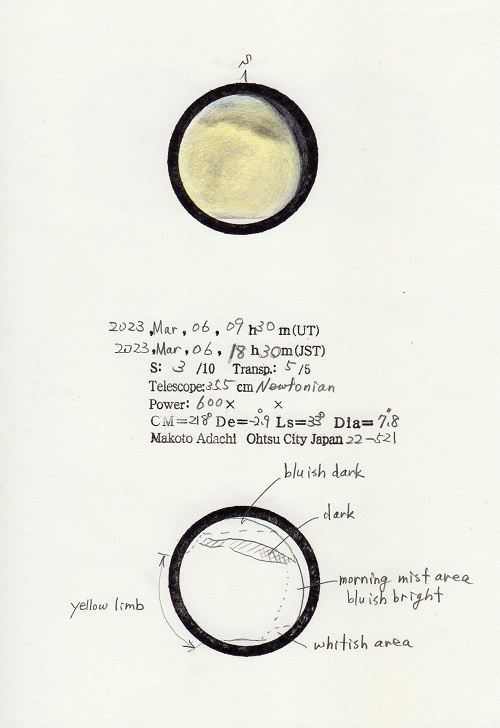 S
2023, Mar, 06, 09 h 30 m (UT)
2023, Mar, 06, 18 h 30 m (JST)
S: 3 /10 Transp.: 5 /5
Telescope: 35.5 cm Newtonian
Power: 600× ×
CM=218° De=-2.9° Ls=33° Dia=7.8"
Makoto Adachi Ohtsu City Japan 22-521
bluish dark
dark
morning mist area
bluish bright
yellow limb
whitish area